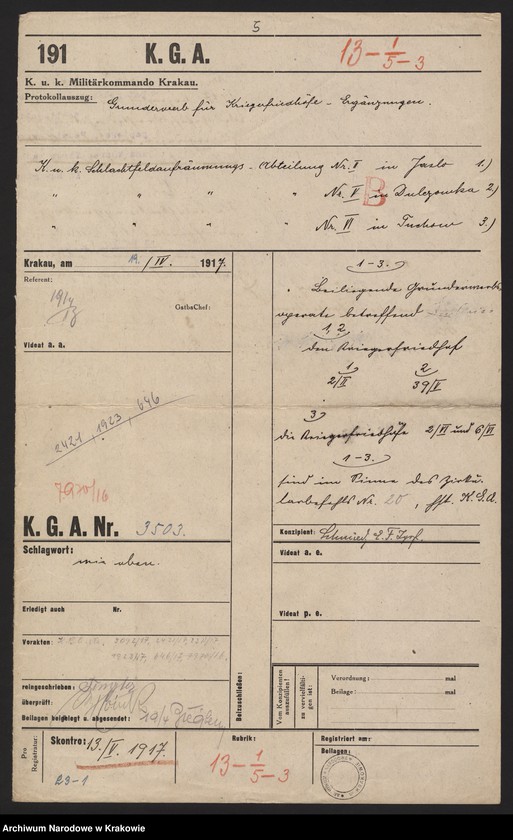 5
191 K. G. A.
13-1/5-3
K. u. k. Militärkommando Krakau.
Protokollauszug: Grunderwerb für Kriegsfriedhöfe - Ergänzungen.
K. u. k. Schlachtfeldaufräumungs-Abteilung Nr. II in Jaslo 1.)
" " " " Nr. V in 2)
B
" " " " Nr. VI in Tuchow 3.)
Krakau, am 19./IV. 1917.
Referent:
19/4
GathsChef:
Videat a. a.
2421, 1923, 646
7970/16
K. G. A. Nr. 3503.
Schlagwort:
wie oben.
Erledigt auch Nr.
Vorakten:
reingeschrieben:
überprüft:
Beilagen beigelegt u. abgesendet: 19/4
Beizuschließen:
1-3.
Beiliegende Grunderwerbs
operate betreffend
1, 2
den Kriegerfriedhof
1 2
2/II 39/V
3
die Kriegerfriedhöfe 2/VI und 6/VI
1-3.
sind im Sinne des Zirku
larbefehls Nr. 20, K. G. A.
Konzipient:
Videat a. e.
Videat p. e.
Vom Konzipienten auszufüllen!
zu vervielfältigen ist:
Verordnung: mal
Beilage: mal
Pro Registratur:
Skontro: 13./V. 1917.
23-1
Rubrik:
13-1/5-3
Registriert am:
Beilagen:
Archiwum Narodowe w Krakowie